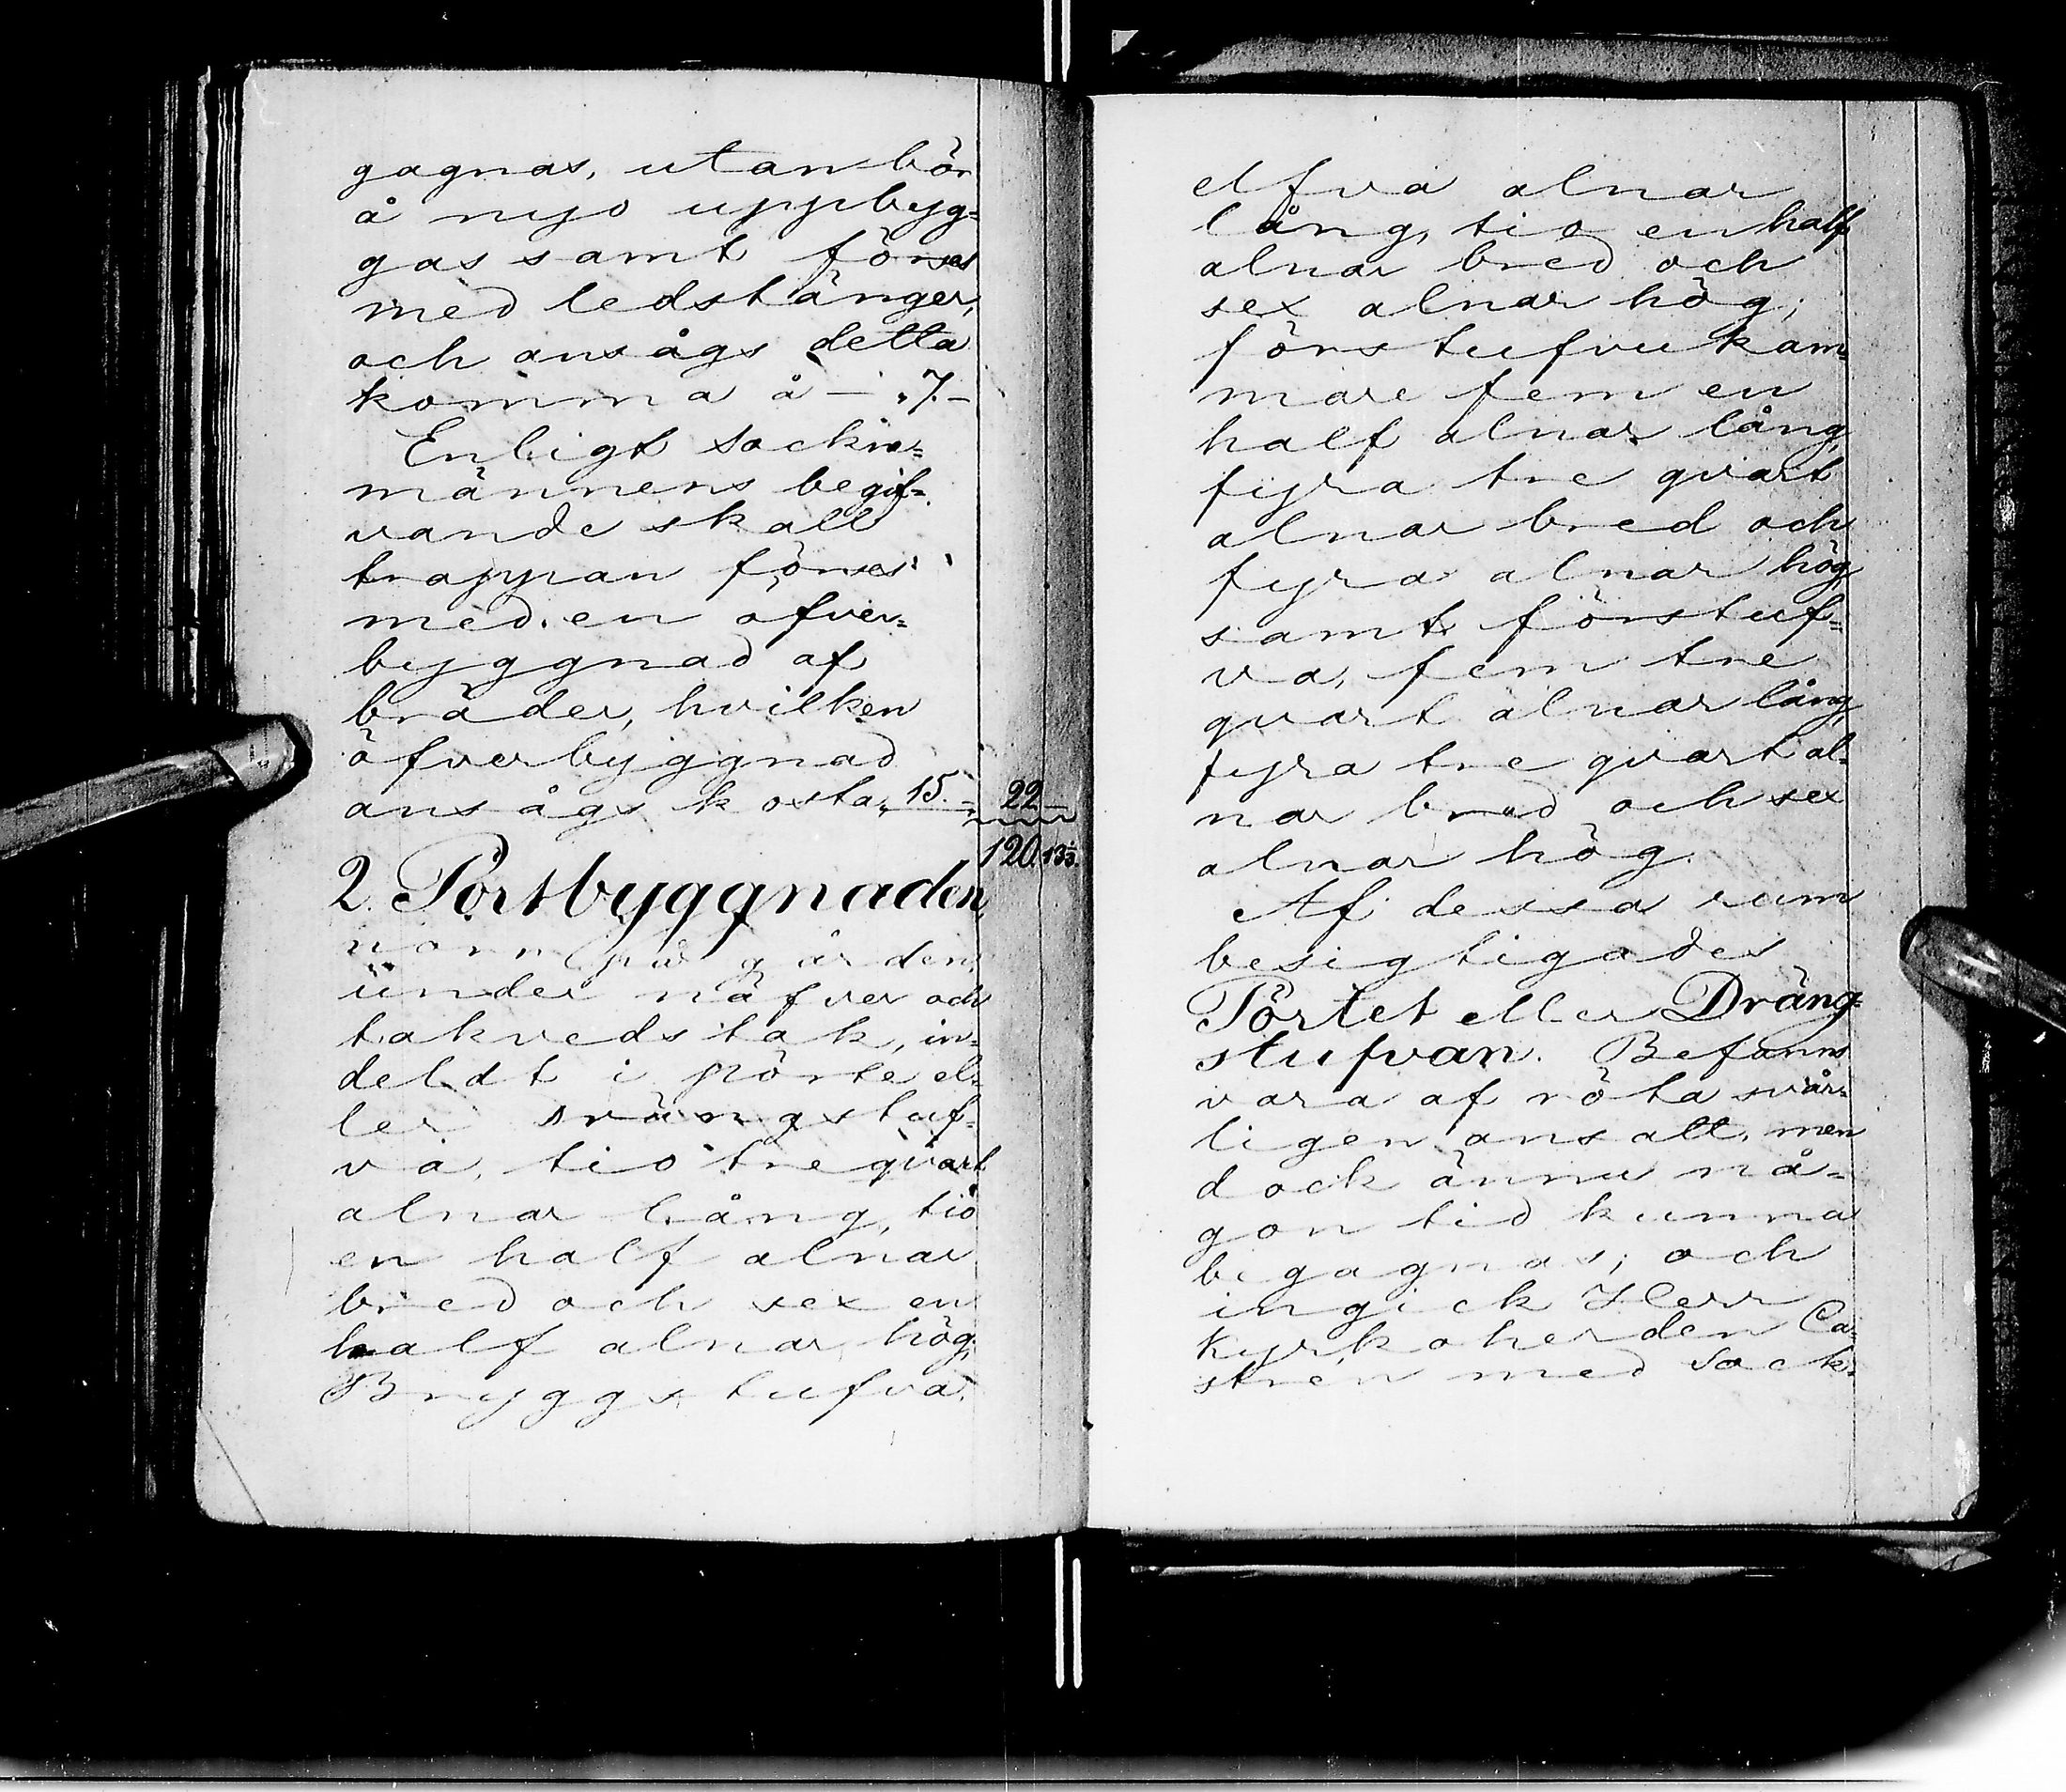 gagnas, utan bör
å nyo uppbyg=
gas samt förses
med ledstänger,
och ansågs detta
komma å — „7.—
Enligt Sockne=
männens begif=
vande skall
trappan förses
med en öfver=
byggnad af
bräder, hvilken
öfverbyggnad
ansågs kosta „ 15. — 22 —
120. 13⅓.
2. Pörtbyggnaden,
norr på gården,
under näfver och
takvedstak, in=
deldt i pörte el=
ler drängstuf=
va, tio tre qvart
alnar lång, tio
en half alnar
bred och sex en
half alnar hög;
Bryggstufva,
elfva alnar
lång, tio en half
alnar bred och
sex alnar hög;
förstufvukam=
mare fem en
half alnar lång,
fyra tre qvart
alnar bred och
fyra alnar hög,
samt förstuf=
va, fem tre
qvart alnar lång,
fyra tre qvart al=
nar bred och sex
alnar hög.
Af dessa rum
besigtigades
Pörtet eller Dräng=
stufvan. Befanns
vara af röta svår=
ligen ansatt, men
dock ännu nå=
gon tid kunna
begagnas; och
ingick Herr
Kyrkoherden Ca=
strén med Sock=